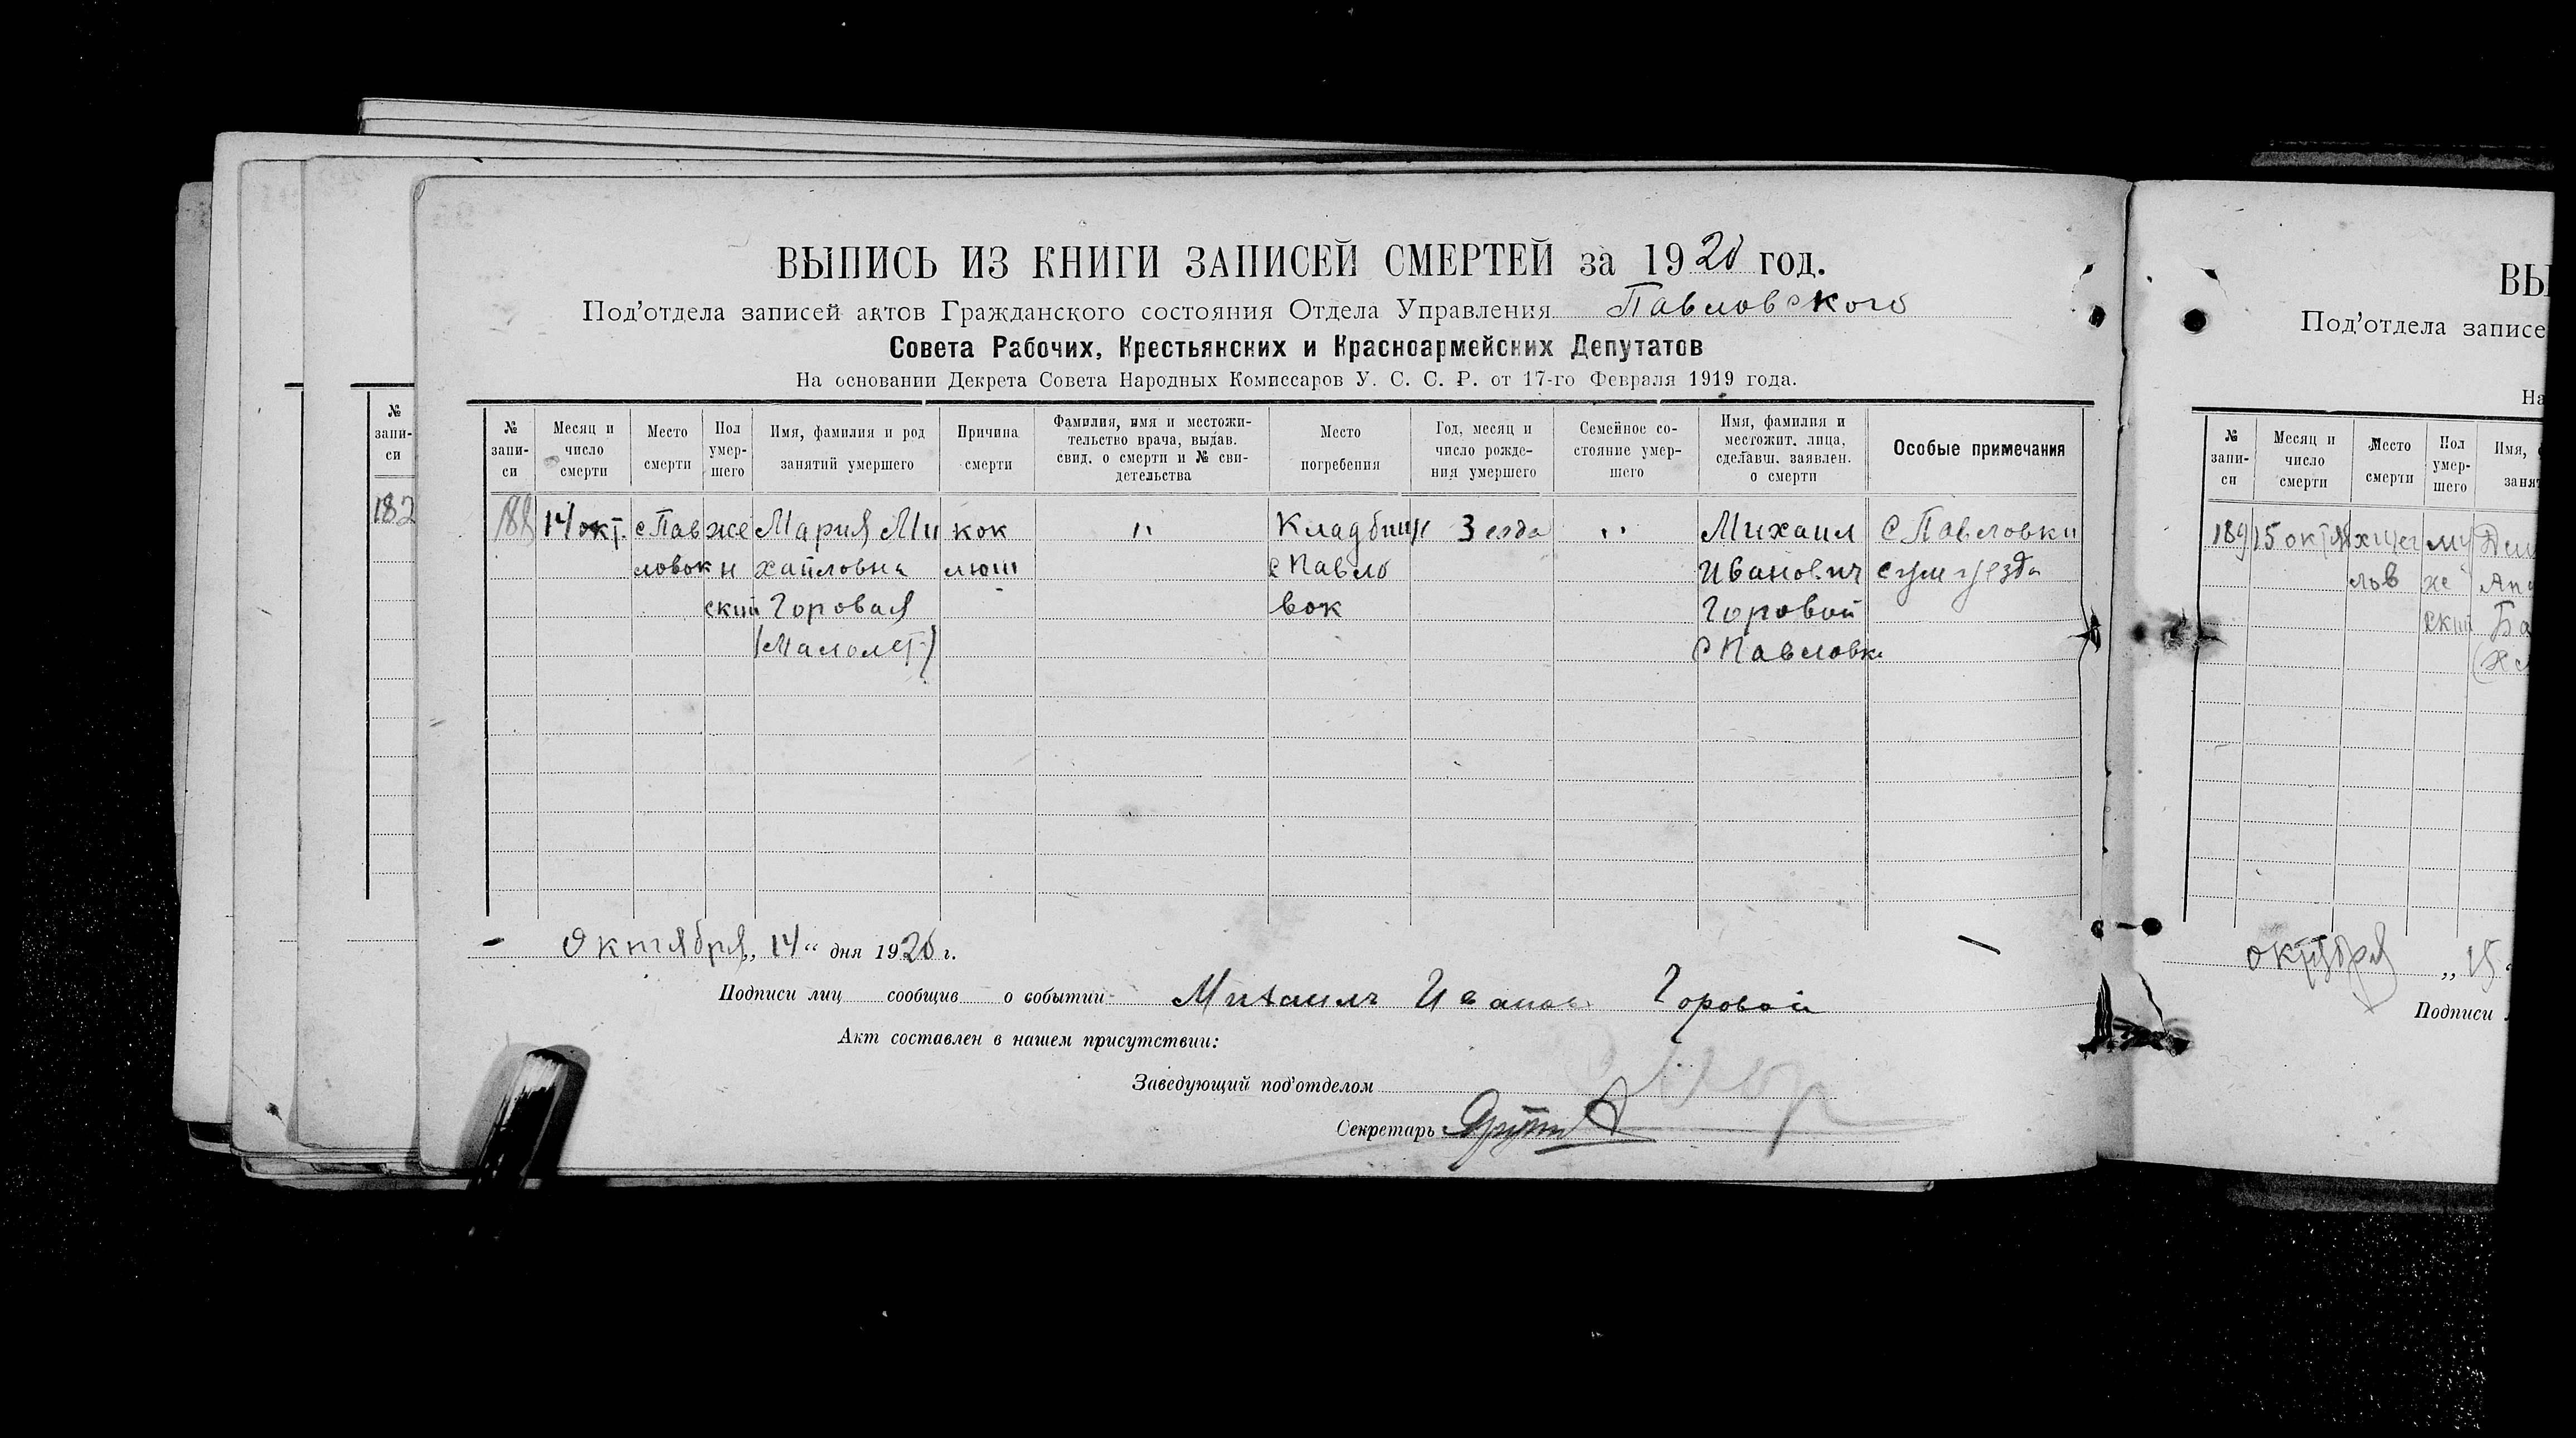 ВЫПИСЬ ИЗ КНИГИ ЗАПИСЕЙ СМЕРТЕЙ за 1920 год.
Под'отдела записей актов Гражданского состояния Отдела Управления Павловского
Совета Рабочих, Крестьянских и Красноармейских Депутатов
На основании Декрета Совета Народных Комиссаров У. С. С. Р. от 17-го Февраля 1919 года.
№ запи- си
Месяц и число смерти
Место смерти
Пол умер- шего
Имя, фамилия и род занятий умершего
Причина смерти
Фамилия, имя и местожи- тельство врача, выдав. свид. о смерти и № сви- детельства
Место погребения
Год, месяц и число рожде- ния умершего
Семейное со- стояние умер- шего
Имя, фамилия и местожит. лица, сделавш. заявлен. о смерти
Особые примечания
188 14 окт. с Пав же Мария Ми кок " Кладбище 3 года " Михаил с Павловки
ловок н хайловна люш с Павло Иванович сум уезда
ский Горовая вок Горовой
(Малолет.) с Павловки
Октября „ 14 “ дня 1920 г.
Подписи лиц сообщив о событии Михаилъ Иванов Горовой
Акт составлен в нашем присутствии:
Заведующий под'отделом
Секретарь
№
запи-
си
182
ВЫ
Под'отдела записе
На
№ запи- си
Месяц и число смерти
Место смерти
Пол умер- шего
Имя,
заня
189 15 окт
ский Ба
октября „ 15
Подписи